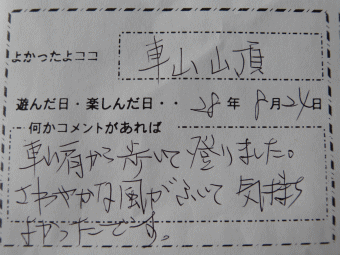 よかったよココ 車山山頂
遊んだ日・楽しんだ日・・ 28年 8月24日
何かコメントがあれば
車山肩から歩いて登りました。
さわやかな風がふいて気持ち
よかったです。